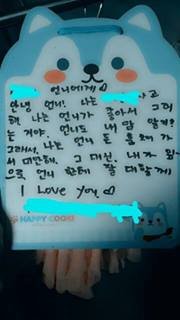 언니에게♡
안녕 언니! 나는 라고
해. 나는 언니가 좋아서 그러
는 거야. 언니도 내 맘 알겨?
그래서, 나는 언니 돈 을 줄 게가
서 미안해. 그 대신, 내가 앞
으로, 언니 한테 잘 대할게
I Love you ♡
HAPPY COOKI